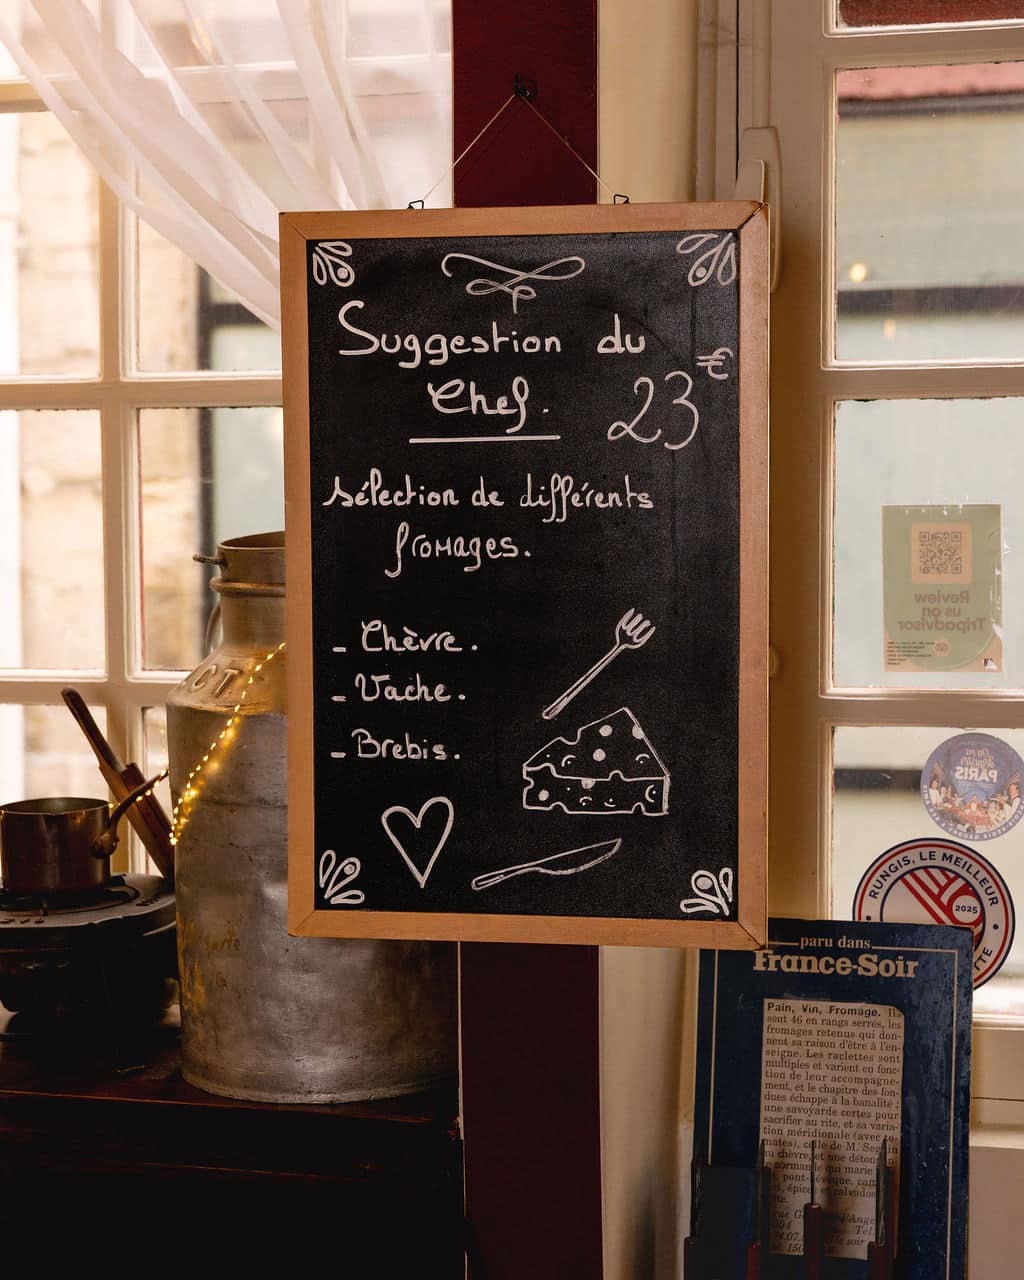 Suggestion du
Chef.
23 €
sélection de différents
fromages.
- Chèvre.
- Vache.
- Brebis.
Review
us on
Tripadvisor
PARIS
RUNGIS, LE MEILLEUR
2025
paru dans
France-Soir
Pain, Vin, Fromage. Ils
sont 46 en rangs serrés, les
fromages retenus qui don-
nent sa raison d'être à l'en-
seigne. Les raclettes sont
multiples et varient en fonc-
tion de leur accompagne-
ment, et le chapitre des fon-
dues échappe à la banalité ;
une savoyarde certes pour
sacrifier au rite, et sa varia-
tion méridionale (avec to-
mates), celle de M. Seguin
au chèvre, et une détonan-
e normande qui marie
pont-l'évêque, cam
épices et calvados